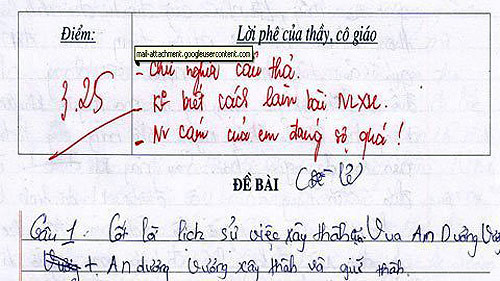 Điểm: Lời phê của thầy, cô giáo
mail-attachment.googleusercontent.com
3.25 - Chữ nghĩa cẩu thả.
- K° biết cách làm bài NLXH.
- N cảm của em đáng sợ quá!
ĐỀ BÀI (Đề lẻ)
Câu 1: Cốt lõi lịch sử việc xây thành của Vua An Dương Vương
+ An dương Vương xây thành và giữ thành.